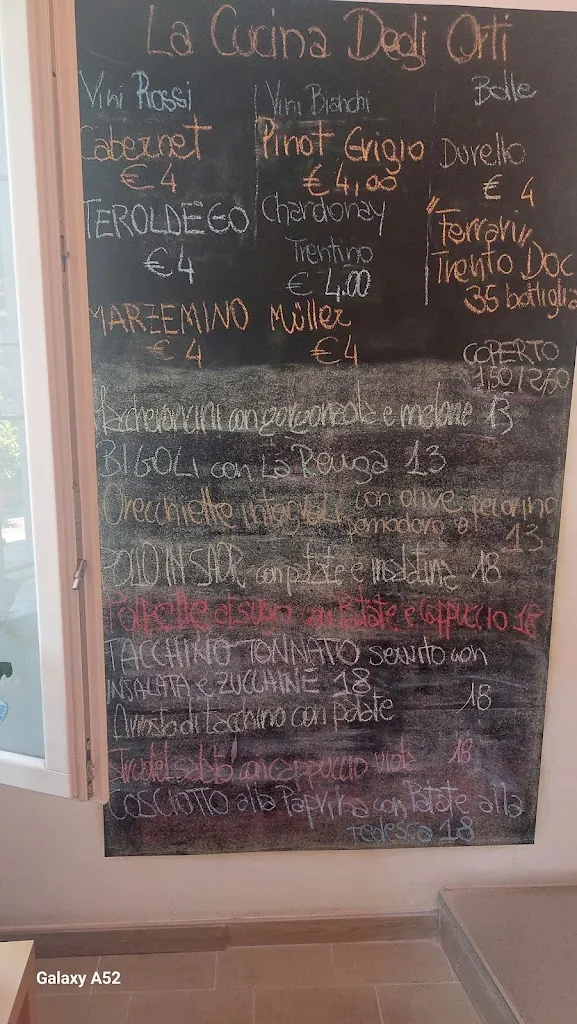 La Cucina Degli Orti
Vini Rossi
Cabernet
€ 4
TEROLDEGO
€ 4
MARZEMINO
€ 4
Vini Bianchi
Pinot Grigio
€ 4,00
Chardonay
Trentino
€ 4.00
Müller
€ 4
Bolle
Durello
€ 4
"Ferrari"
Trento Doc
35 bottiglia
COPERTO
1,50 / 2,50
Maccheroncini con gorgonzola e melone 13
BIGOLI con La Reuga 13
Orecchiette integrali con olive pecorino
pomodoro e
13
POLLO IN SAOR con patate e insalatina 18
Polpette al sugo con Patate e Cappuccio 18
TACCHINO TONNATO servito con
INSALATA e ZUCCHINE 18
Arrosto di tacchino con patate 18
con cappuccio viola 18
COSCIOTTO alla Paprika con Patate alla
tedesca 18
Galaxy A52